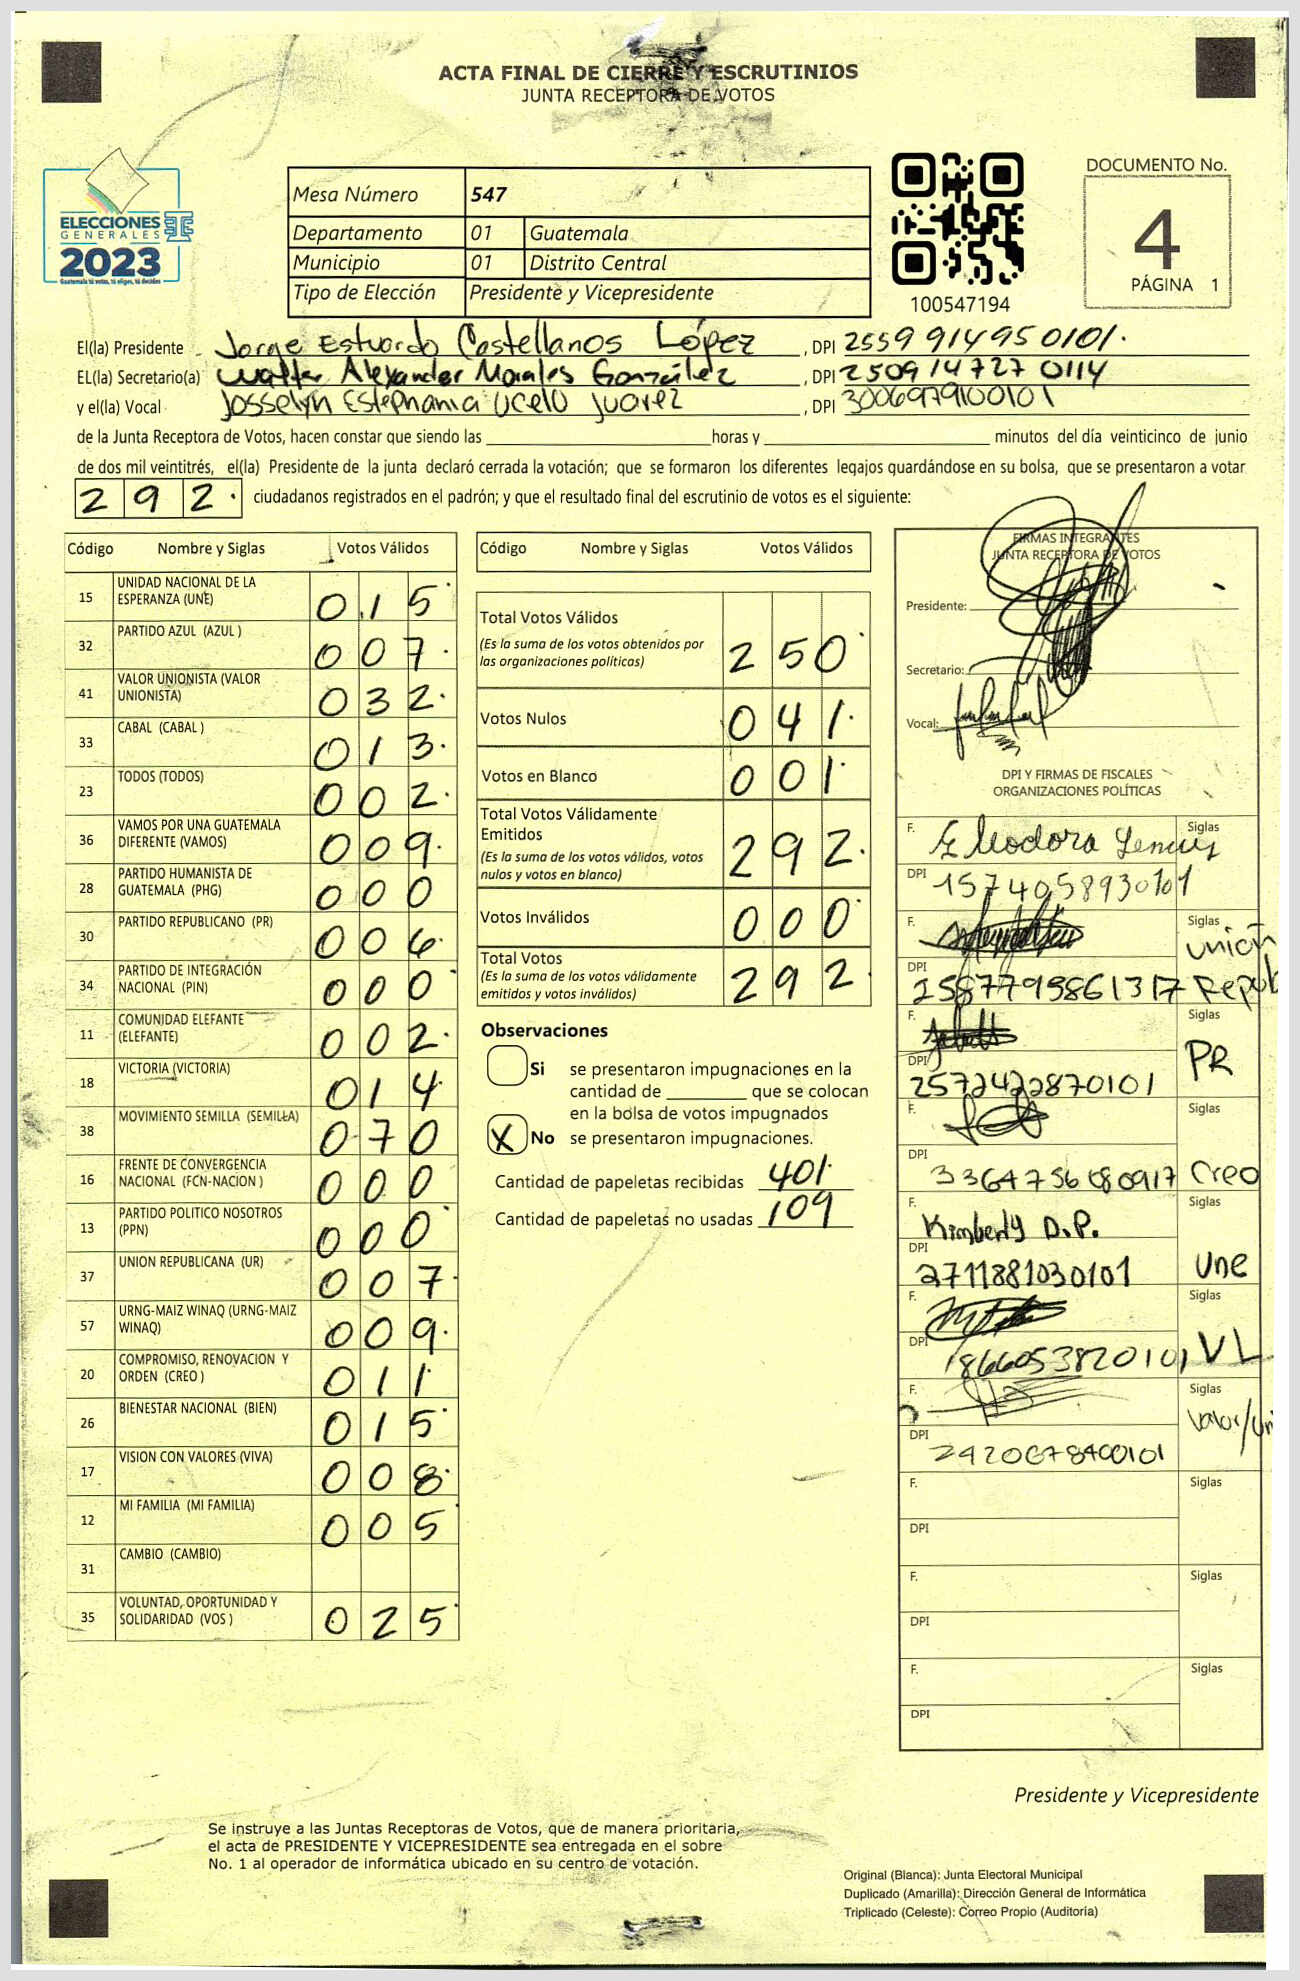 ACTA FINAL DE CIERRE Y ESCRUTINIOS
JUNTA RECEPTORA DE VOTOS
ELECCIONES
GENERALES
2023
Guatemala tú votas, tú eliges, tú decides
Mesa Número 547
Departamento 01 Guatemala
Municipio 01 Distrito Central
Tipo de Elección Presidente y Vicepresidente
100547194
DOCUMENTO No.
4
PÁGINA 1
El(la) Presidente Jorge Estuardo Castellanos López, DPI 2559 91495 0101.
EL(la) Secretario(a) Walter Alexander Morales González, DPI 250914727 0114
y el(la) Vocal Josselyn Estephania Ucelo Juarez, DPI 3006979100101
de la Junta Receptora de Votos, hacen constar que siendo las horas y minutos del día veinticinco de junio
de dos mil veintitrés, el(la) Presidente de la junta declaró cerrada la votación; que se formaron los diferentes legajos quardándose en su bolsa, que se presentaron a votar
292. ciudadanos registrados en el padrón; y que el resultado final del escrutinio de votos es el siguiente:
Código Nombre y Siglas Votos Válidos
15 UNIDAD NACIONAL DE LA ESPERANZA (UNE) 015
32 PARTIDO AZUL (AZUL ) 007.
41 VALOR UNIONISTA (VALOR UNIONISTA) 032.
33 CABAL (CABAL ) 013.
23 TODOS (TODOS) 002.
36 VAMOS POR UNA GUATEMALA DIFERENTE (VAMOS) 009.
28 PARTIDO HUMANISTA DE GUATEMALA (PHG) 000
30 PARTIDO REPUBLICANO (PR) 006.
34 PARTIDO DE INTEGRACIÓN NACIONAL (PIN) 000
11 COMUNIDAD ELEFANTE (ELEFANTE) 002.
18 VICTORIA (VICTORIA) 014
38 MOVIMIENTO SEMILLA (SEMILLA) 070
16 FRENTE DE CONVERGENCIA NACIONAL (FCN-NACION ) 000
13 PARTIDO POLITICO NOSOTROS (PPN) 000
37 UNION REPUBLICANA (UR) 007.
57 URNG-MAIZ WINAQ (URNG-MAIZ WINAQ) 009.
20 COMPROMISO, RENOVACION Y ORDEN (CREO ) 011
26 BIENESTAR NACIONAL (BIEN) 015
17 VISION CON VALORES (VIVA) 008.
12 MI FAMILIA (MI FAMILIA) 005
31 CAMBIO (CAMBIO)
35 VOLUNTAD, OPORTUNIDAD Y SOLIDARIDAD (VOS ) 025
Código Nombre y Siglas Votos Válidos
Total Votos Válidos 250
(Es la suma de los votos obtenidos por
las organizaciones políticas)
Votos Nulos 041.
Votos en Blanco 001
Total Votos Válidamente
Emitidos 292.
(Es la suma de los votos válidos, votos
nulos y votos en blanco)
Votos Inválidos 000
Total Votos 292.
(Es la suma de los votos válidamente
emitidos y votos inválidos)
Observaciones
Si se presentaron impugnaciones en la
cantidad de que se colocan
en la bolsa de votos impugnados
X No se presentaron impugnaciones.
Cantidad de papeletas recibidas 401.
Cantidad de papeletas no usadas 109
FIRMAS INTEGRANTES
JUNTA RECEPTORA DE VOTOS
Presidente:
Secretario:
Vocal:
DPI Y FIRMAS DE FISCALES
ORGANIZACIONES POLÍTICAS
F. Eleodora Siglas
DPI 1574058930101
F. Siglas
Unión
DPI 2587795861317 Repúb
F. Siglas
PR
DPI 2572422870101
F. Siglas
DPI 3364756080917 Creo
F. Kimberly D.P. Siglas
DPI 2711881030101 Une
F. Siglas
DPI 1866053820101 VL
F. Siglas
Valor/Uni
DPI 2420678400101
F. Siglas
DPI
F. Siglas
DPI
F. Siglas
DPI
Presidente y Vicepresidente
Se instruye a las Juntas Receptoras de Votos, que de manera prioritaria,
el acta de PRESIDENTE Y VICEPRESIDENTE sea entregada en el sobre
No. 1 al operador de informática ubicado en su centro de votación.
Original (Blanca): Junta Electoral Municipal
Duplicado (Amarilla): Dirección General de Informática
Triplicado (Celeste): Correo Propio (Auditoría)